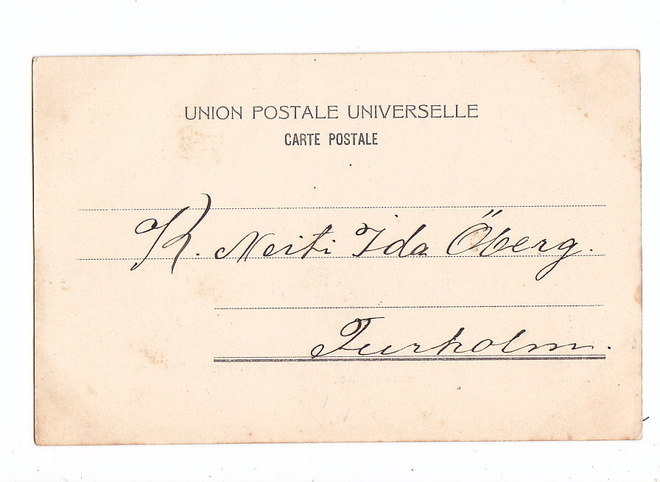 UNION POSTALE UNIVERSELLE
CARTE POSTALE
K. Neiti Ida Öberg.
Turholm.